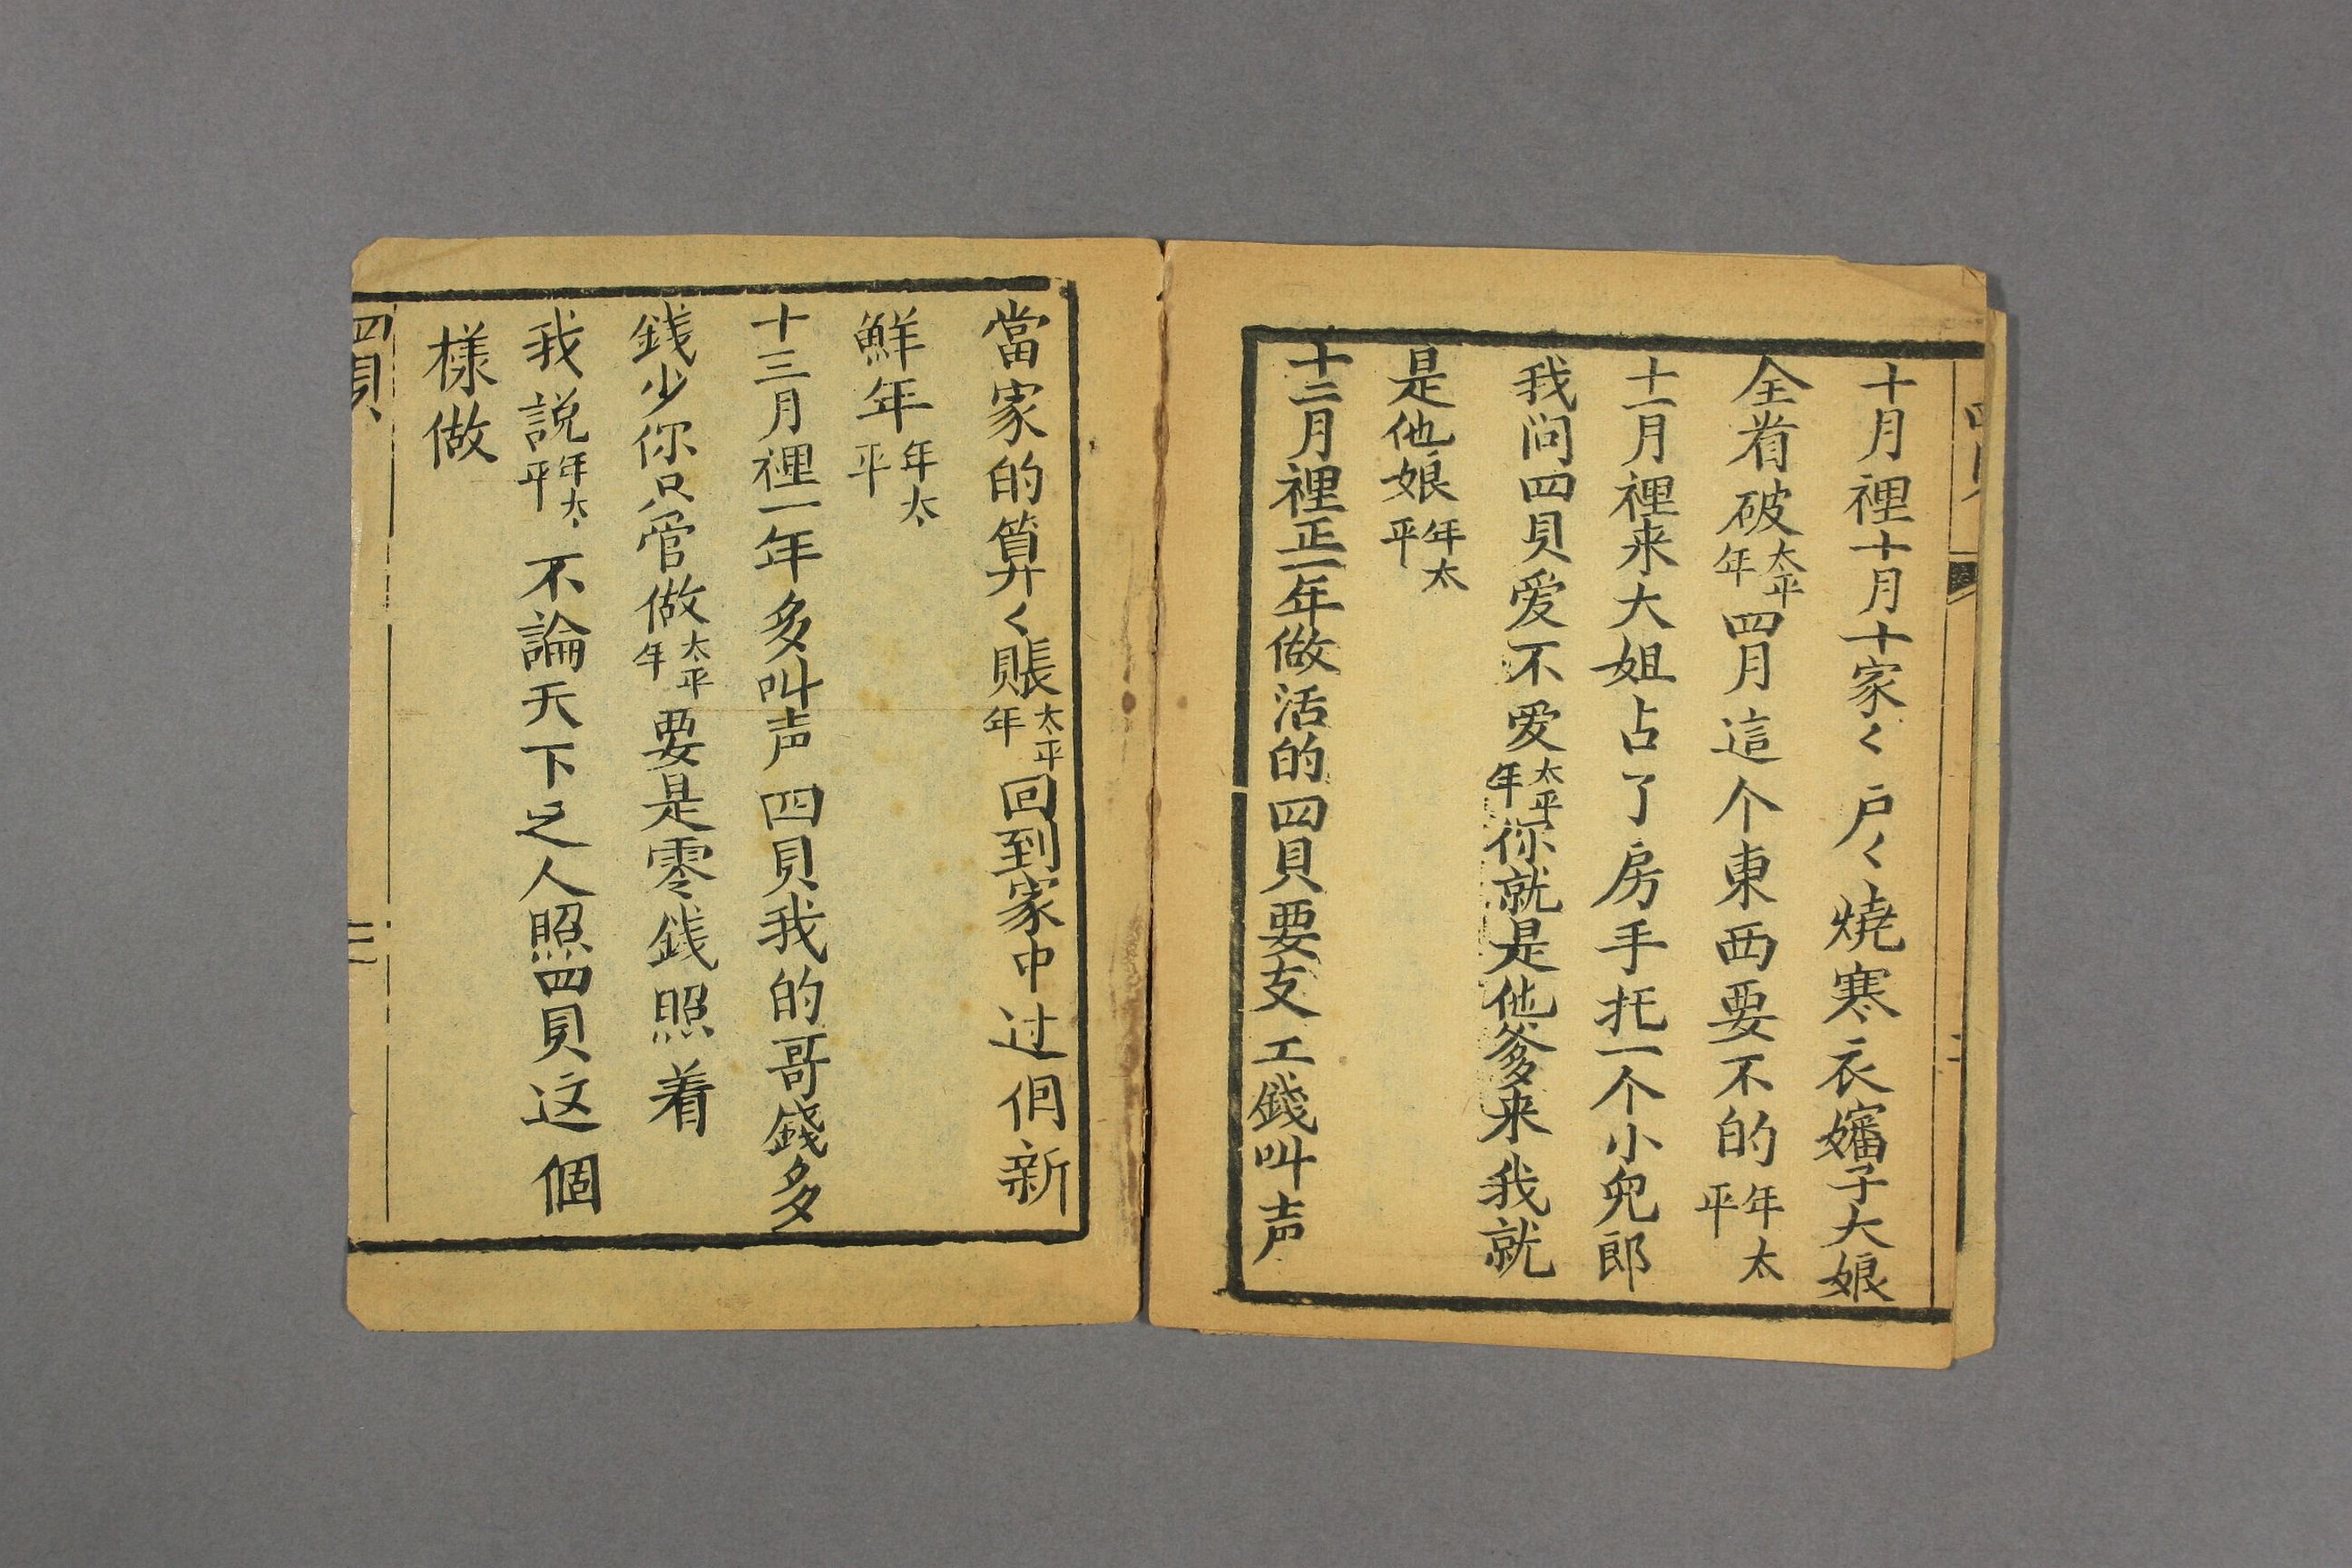 十月裡十月十家〱户〱燒寒衣嬸子大娘
全着破太平年四月這个東西要不的年太平
十一月裡来大姐占了房手托一个小兒郎
我问四貝爱不爱太平年你就是他爹来我就
是他娘年太平
十二月裡正一年做活的四貝要支工錢叫声
當家的算〱賬太平年回到家中过個新
鮮年年太平
十三月裡一年多叫声四貝我的哥錢多
銭少你只管做太平年要是零銭照着
我説年太平不論天下之人照四貝这個
樣做
四貝
三